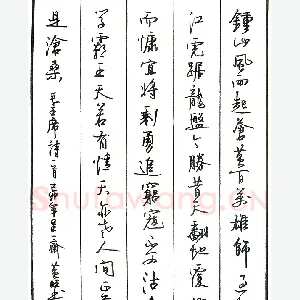 鍾山風雨起蒼黃百萬雄師過
江虎踞龍盤今勝昔天翻地覆
而慷宜將剩勇追窮寇不可沽
學霸王天若有情天亦老人間正
是滄桑 毛主席詩一首
Shufawang.CN